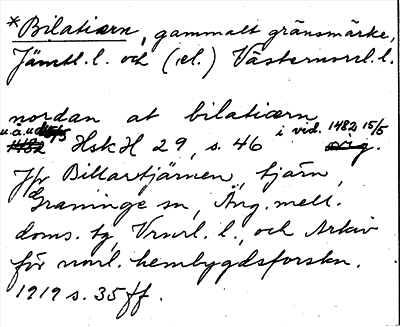 *Bilatiærn, gammalt gränsmärke,
Jämtl. l. och (el.) Västernorrl. l.
nordan at bilatiærn
u.å. HskH 29, s. 46 i vid. 1482 15/5
Jfr Billartjärnen, tjärn,
Graninge sn, Ång. mell.
doms. tg, Vnrl. l., och Arkiv
för norrl. hembygdsforskn.
1919 s. 35 ff.